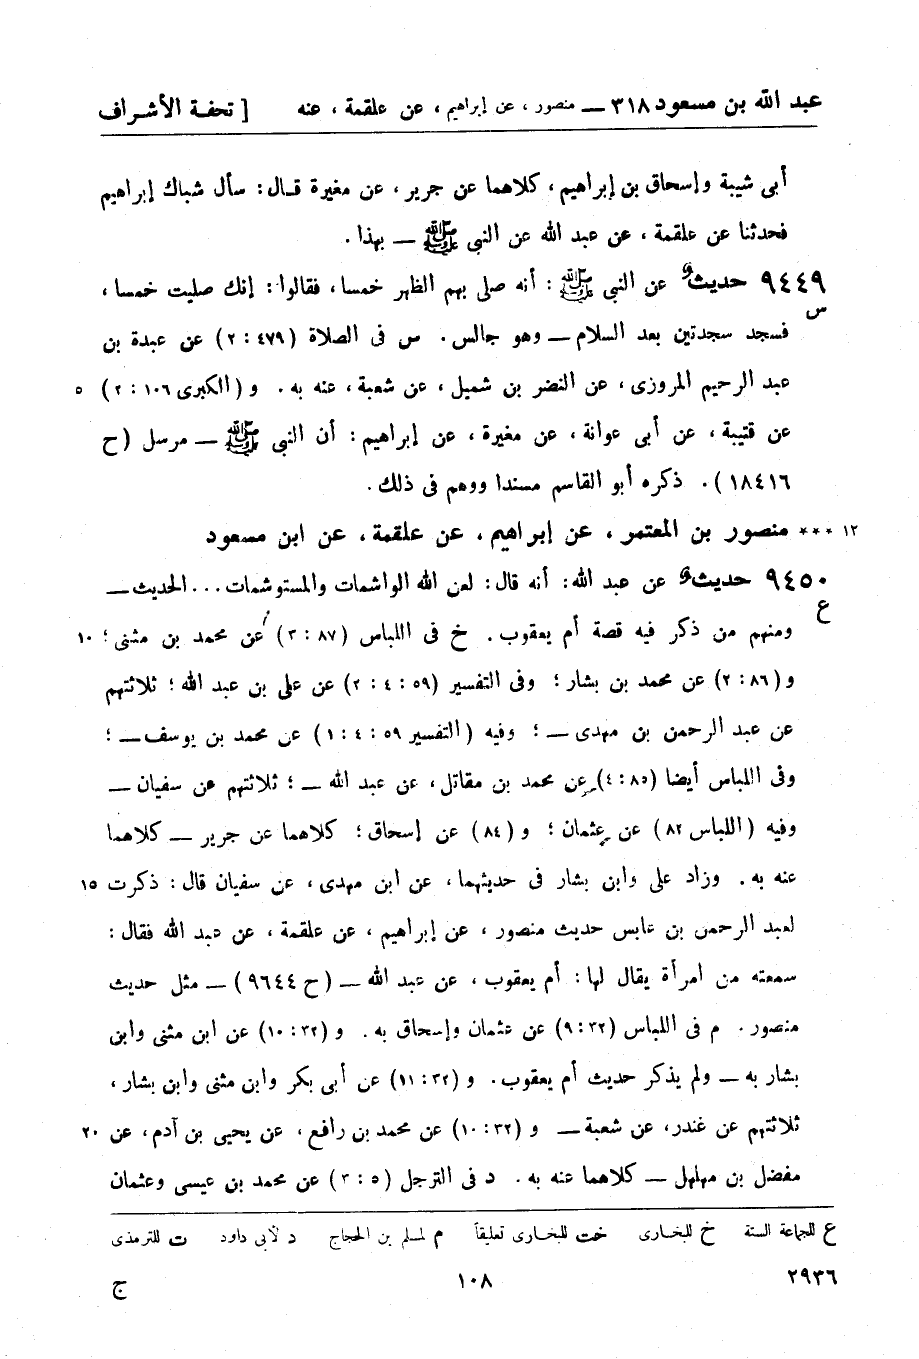 عبد الله بن مسعود ٣١٨ — منصور ، عن إبراهيم ، عن علقمة ، عنه [ تحفة الأشراف
أبى شيبة وإسحاق بن إبراهيم ، كلاهما عن جرير ، عن مغيرة قال : سأل شباك إبراهيم
فحدثنا عن علقمة ، عن عبد الله عن النبى ﷺ — بهذا .
٩٤٤٩ حديث عن النبى ﷺ : أنه صلى بهم الظهر خمسا ، فقالوا : إنك صليت خمسا ،
س
فسجد سجدتين بعد السلام — وهو جالس . س فى الصلاة (٤٧٩ : ٢) عن عبدة بن
عبد الرحيم المروزى ، عن النضر بن شميل ، عن شعبة ، عنه به . و (الكبرى ١٠٦ : ٢) ٥
عن قتيبة ، عن أبى عوانة ، عن مغيرة ، عن إبراهيم : أن النبى ﷺ — مرسل (ح
١٨٤١٦) . ذكره أبو القاسم مسندا ووهم فى ذلك .
١٢ *** منصور بن المعتمر ، عن إبراهيم ، عن علقمة ، عن ابن مسعود
٩٤٥٠ حديث عن عبد الله : أنه قال : لعن الله الواشمات والمستوشمات ... الحديث —
ع
ومنهم من ذكر فيه قصة أم يعقوب . خ فى اللباس (٨٧ : ٣) عن محمد بن مثنى ؛ ١٠
و (٨٦ : ٢) عن محمد بن بشار ؛ وفى التفسير (٥٩ : ٤ : ٢) عن على بن عبد الله ؛ ثلاثتهم
عن عبد الرحمن بن مهدى — ؛ وفيه (التفسير ٥٩ : ٤ : ١) عن محمد بن يوسف — ؛
وفى اللباس أيضا (٨٥ : ٤) عن محمد بن مقاتل ، عن عبد الله — ؛ ثلاثتهم عن سفيان —
وفيه (اللباس ٨٢) عن عثمان ؛ و (٨٤) عن إسحاق ؛ كلاهما عن جرير — كلاهما
عنه به . وزاد على وابن بشار فى حديثهما ، عن ابن مهدى ، عن سفيان قال : ذكرت ١٥
لعبد الرحمن بن عابس حديث منصور ، عن إبراهيم ، عن علقمة ، عن عبد الله فقال :
سمعته من امرأة يقال لها : أم يعقوب ، عن عبد الله — (ح ٩٦٤٤) — مثل حديث
منصور . م فى اللباس (٣٢ : ٩) عن عثمان وإسحاق به . و (٣٢ : ١٠) عن ابن مثنى وابن
بشار به — ولم يذكر حديث أم يعقوب . و (٣٢ : ١١) عن أبى بكر وابن مثنى وابن بشار ،
ثلاثتهم عن غندر ، عن شعبة — و (٣٢ : ١٠) عن محمد بن رافع ، عن يحيى بن آدم ، عن ٢٠
مفضل بن مهلهل — كلاهما عنه به . د فى الترجل (٥ : ٣) عن محمد بن عيسى وعثمان
ع للجماعة الستة خ للبخارى خت للبخارى تعليقاً م لمسلم بن الحجاج د لأبى داود ت للترمذى
٢٩٣٦ ١٠٨ ج